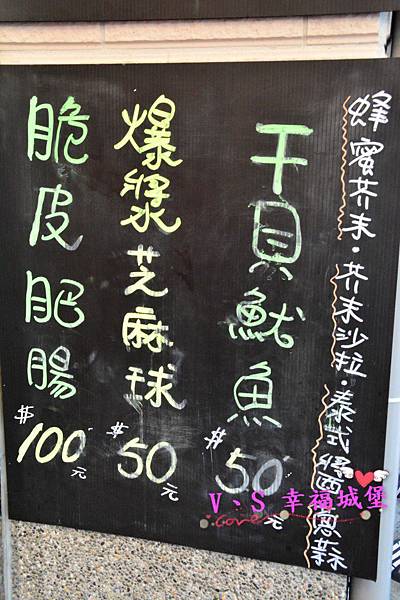 蜂蜜芥末·芥末沙拉·泰式醬
干貝魷魚
$50元
爆漿芝麻球
$50元
脆皮肥腸
$100元
V、S 幸福城堡
Love